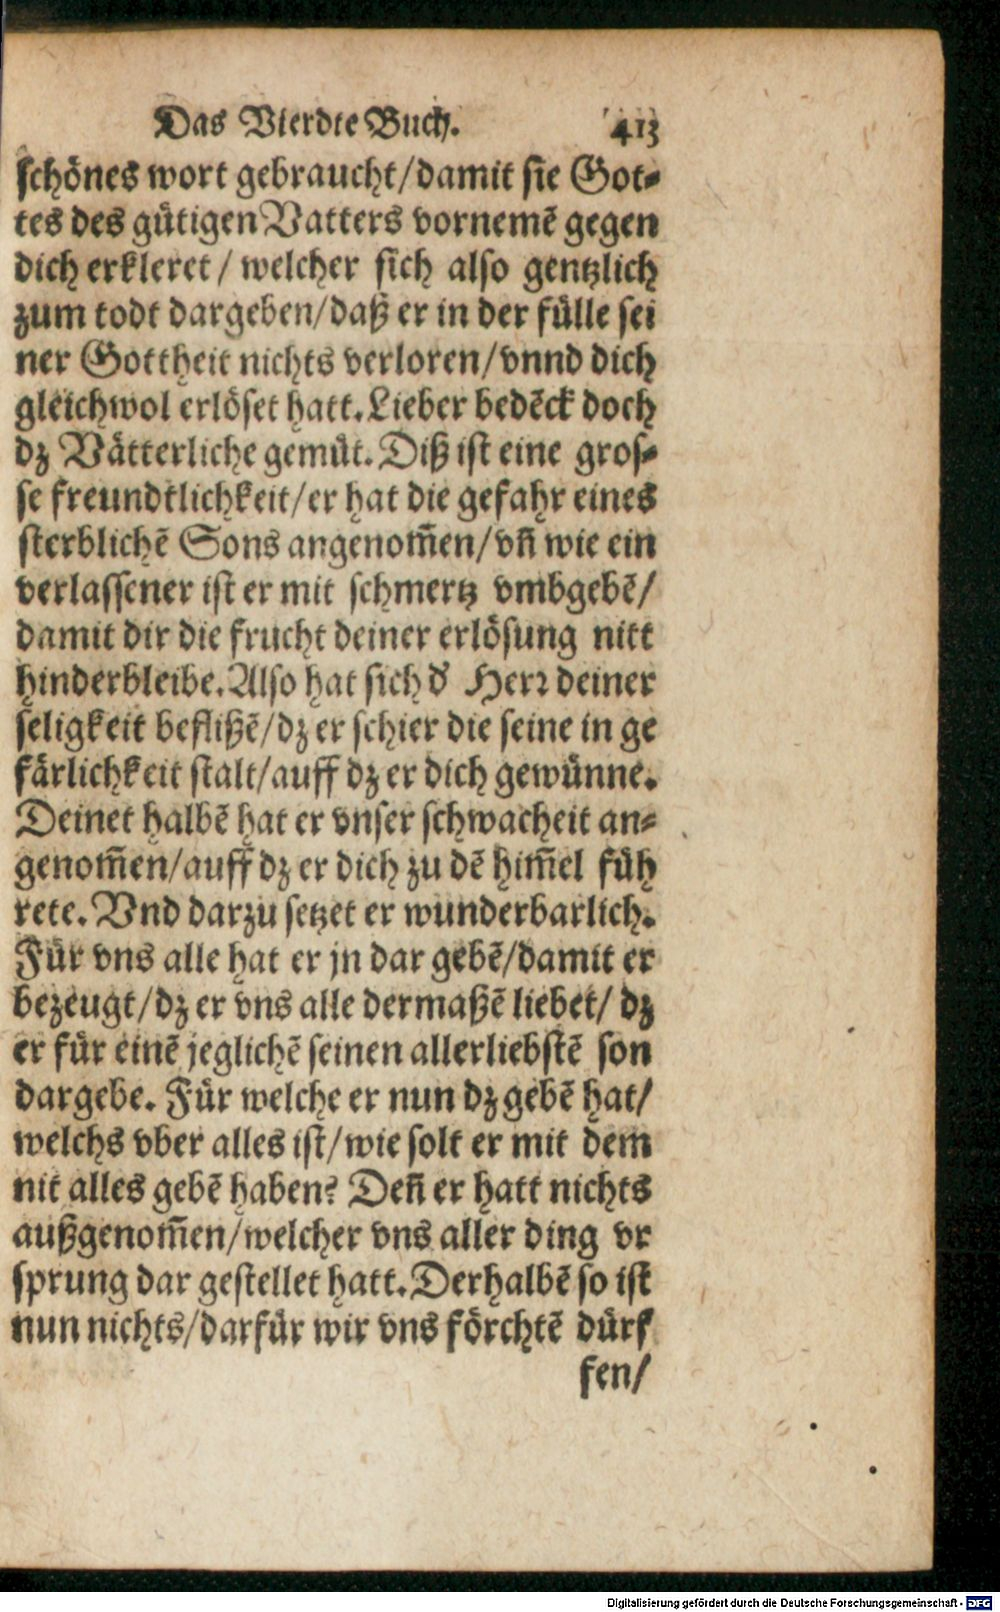 Das Vierdte Buch. 413
schönes wort gebraucht/damit sie Got-
tes des gütigen Vatters vornemẽ gegen
dich erkleret / welcher sich also gentzlich
zum todt dargeben/daß er in der fülle sei
ner Gottheit nichts verloren/vnnd dich
gleichwol erlöset hatt. Lieber bedẽck doch
dz Vätterliche gemüt. Diß ist eine gros-
se freundtlichkeit/er hat die gefahr eines
sterblichẽ Sons angenom̃en/vñ wie ein
verlassener ist er mit schmertz vmbgebẽ/
damit dir die frucht deiner erlösung nitt
hinderbleibe. Also hat sich d' Herr deiner
seligkeit beflißẽ/dz er schier die seine in ge
färlichkeit stalt/auff dz er dich gewünne.
Deinet halbẽ hat er vnser schwacheit an-
genom̃en/auff dz er dich zu dẽ him̃el füh
rete. Vnd darzu setzet er wunderbarlich.
Für vns alle hat er jn dar gebẽ/damit er
bezeugt/dz er vns alle dermaßẽ liebet/ dz
er für einẽ jeglichẽ seinen allerliebstẽ son
dargebe. Für welche er nun dz gebẽ hat/
welchs vber alles ist/wie solt er mit dem
nit alles gebẽ haben? Deñ er hatt nichts
außgenom̃en/welcher vns aller ding vr
sprung dar gestellet hatt. Derhalbẽ so ist
nun nichts/darfür wir vns förchtẽ dürf
fen/
Digitalisierung gefördert durch die Deutsche Forschungsgemeinschaft - DFG